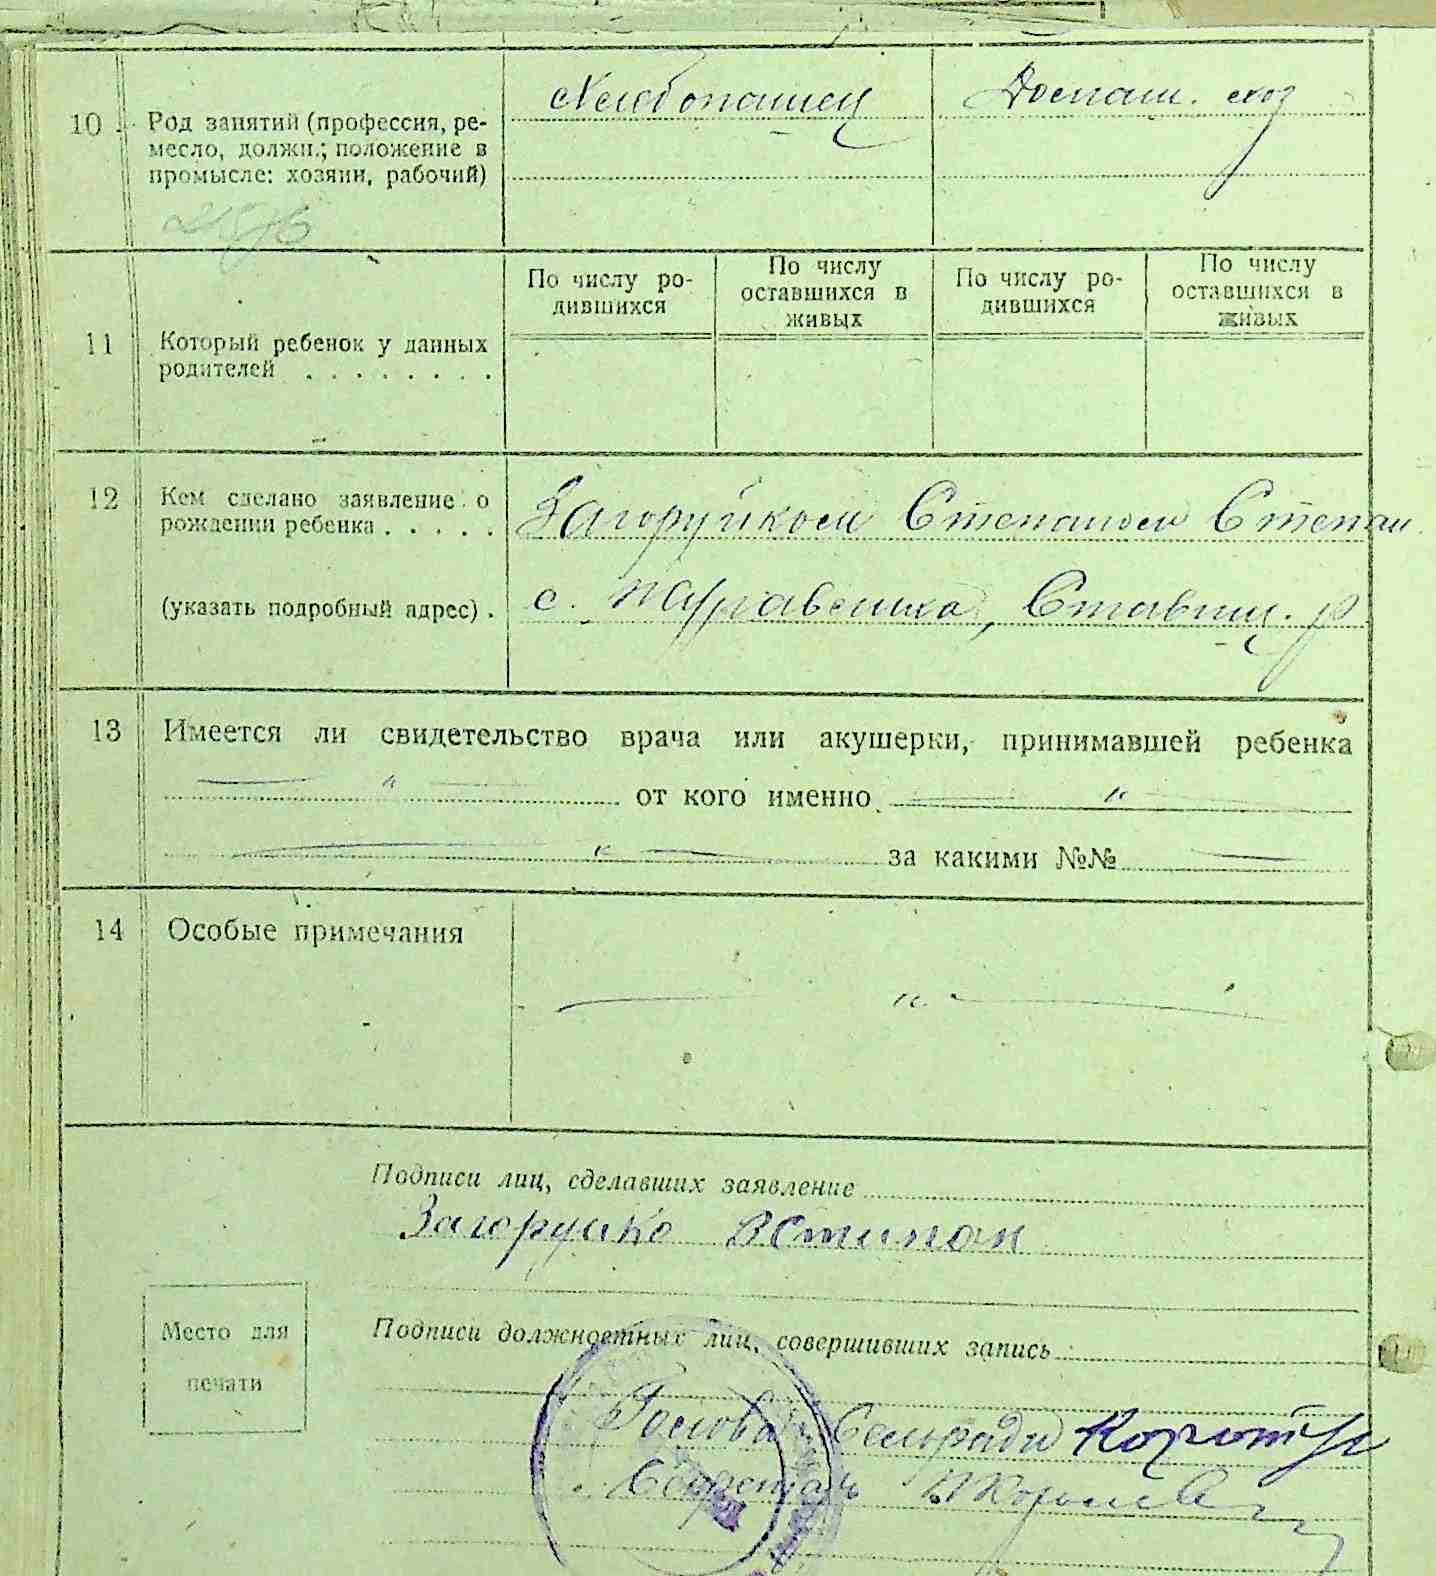 10 Род занятий (профессия, ре-
месло, должн.; положение в
промысле: хозяин, рабочий)
Хлебопашец
Домаш. хоз
11 Который ребенок у данных
родителей . . . . . . . .
По числу ро-
дившихся
По числу
оставшихся в
живых
По числу ро-
дившихся
По числу
оставшихся в
живых
12 Кем сделано заявление о
рождении ребенка . . . . .
Загоруйком Степаном Степан.
(указать подробный адрес) .
с. Журавлиха, Ставищ. р
13 Имеется ли свидетельство врача или акушерки, принимавшей ребенка
— " — от кого именно — " —
— " — за какими №№ —
14 Особые примечания
— " —
Подписи лиц, сделавших заявление
Загоруйко Стипан
Место для
печати
Подписи должностных лиц, совершивших запись
Голова Сельради
Секретарь